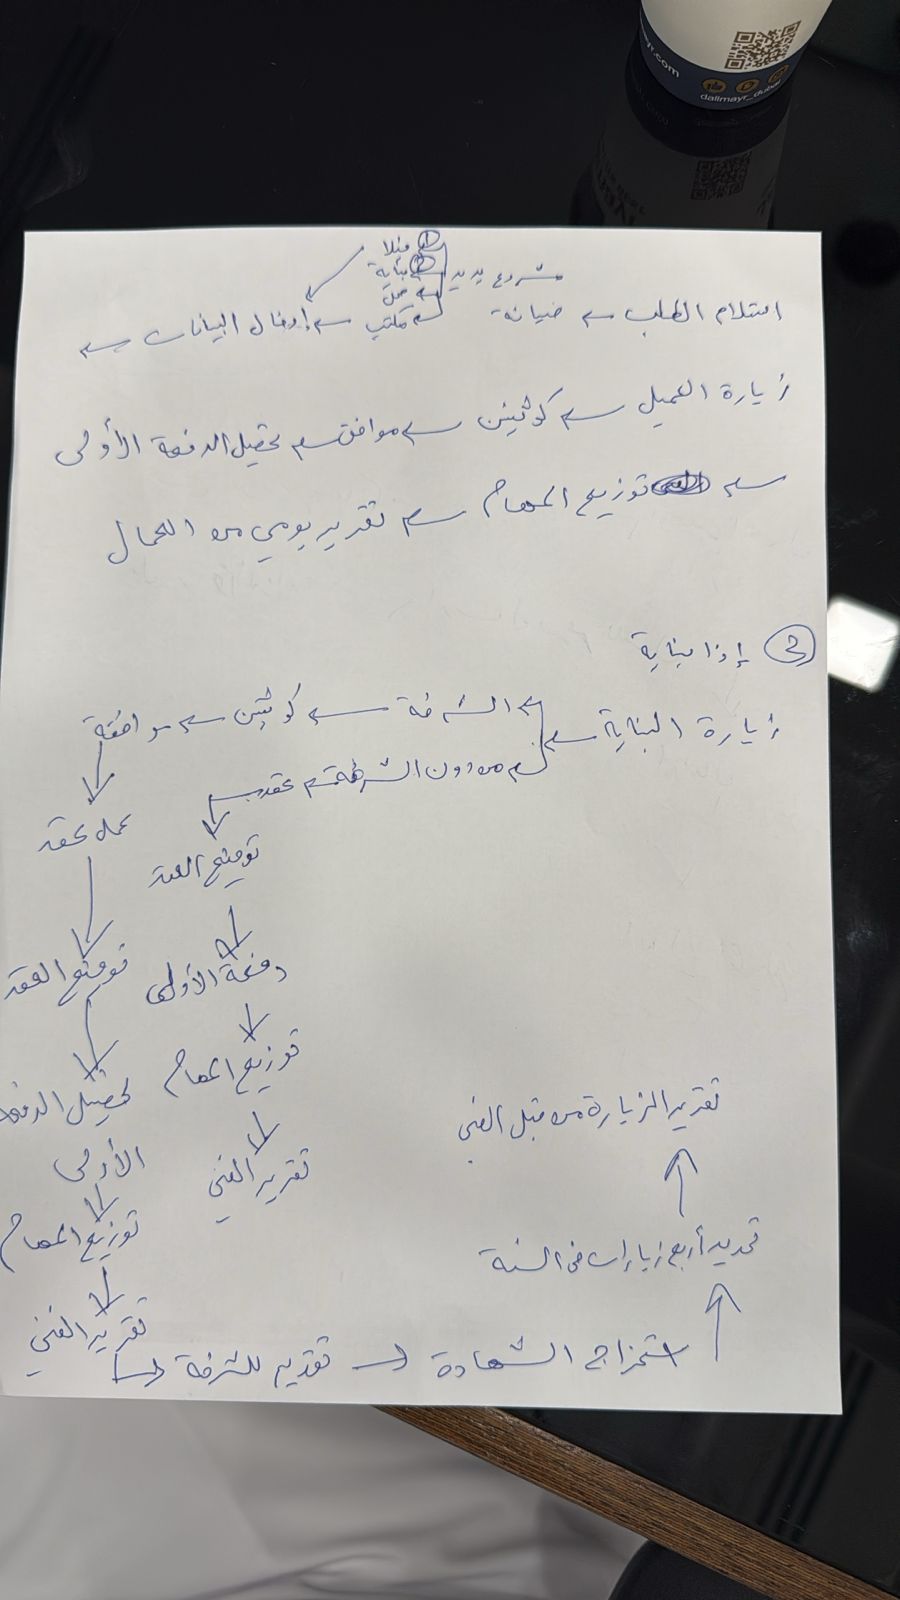 dallmayr_dubai
① فيلا
② بناية
مشروع جديد
محل
استلام الطلب ← صيانة
مكتب ← إدخال البيانات ←
زيارة العميل ← كوتيشن ← موافق ← تحصيل الدفعة الأولى
← توزيع المهام ← تقرير يومي من العمال
② إذا بناية
زيارة البناية ← الشرفة ← كوتيشن ← موافقة
← من دون الشرفة ← عقد ←
عمل عقد
توقيع العقد
توقيع العقد
دفعة الأولى
تحصيل الدفعة
الأولى
توزيع المهام
توزيع المهام
تقرير الفني
تقرير الفني
تقرير الزيارة من قبل الفني
تحديد أربع زيارات في السنة
استخراج الشهادة ← تقديم للشرفة ←